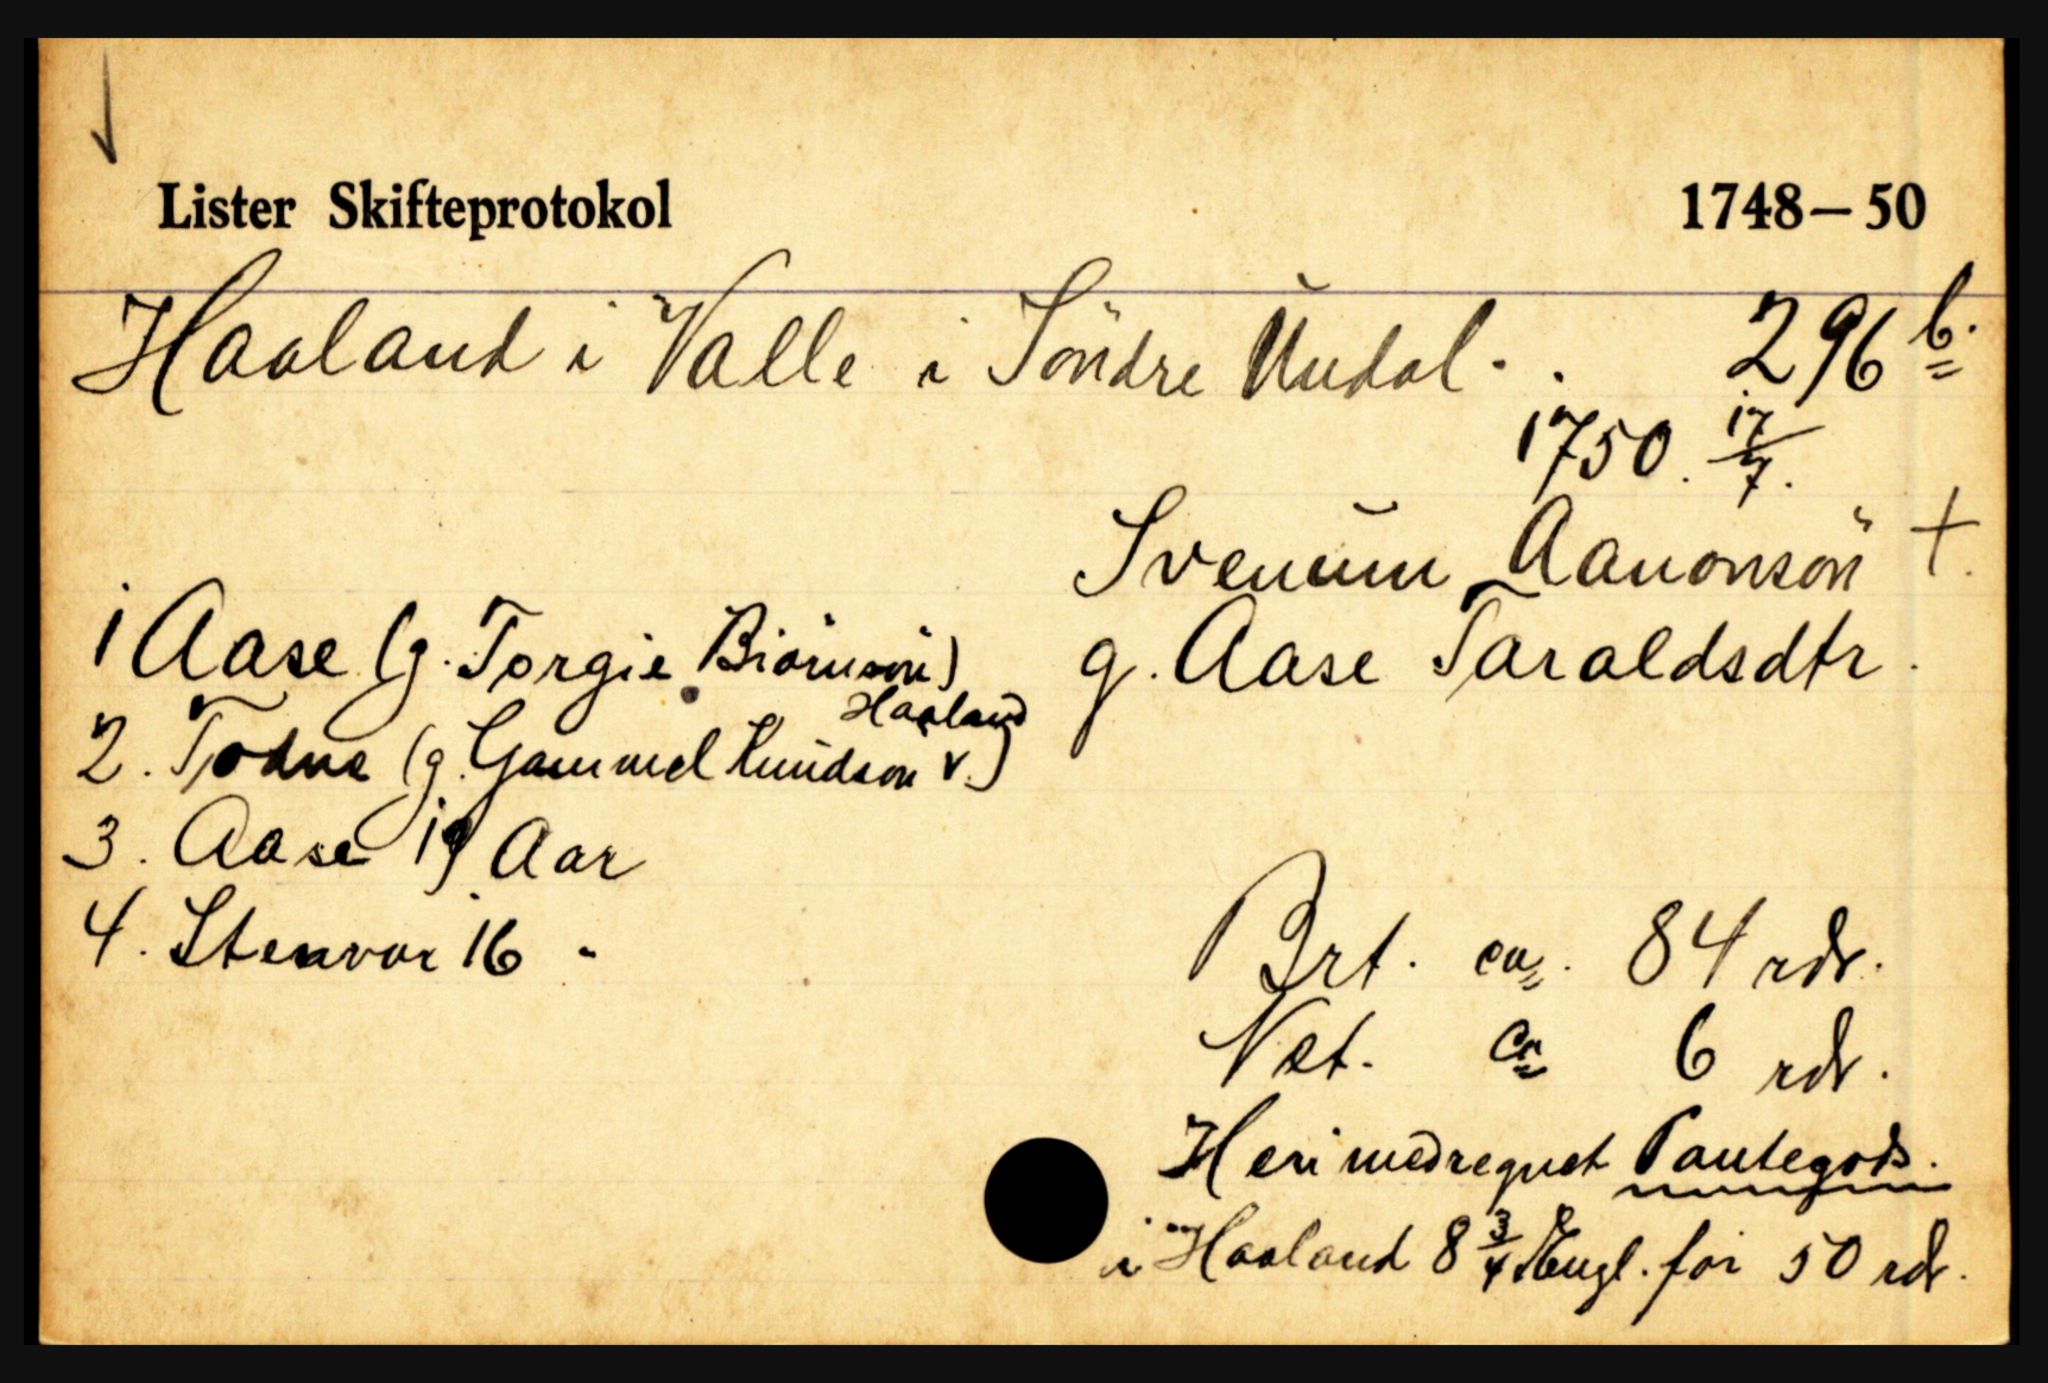 Lister Skifteprotokol 1748–50
Haaland i Valle i Söndre Undal. 296 b.
1750. 17/7.
Svenum Aanonsön +.
g. Aase Taraldsdtr.
1 Aase (g. Torgie Biörnsön)
Haaland
2. Todne (g. Gammel Knudson v.)
3. Aase 19 Aar
4. Stenvor 16 "
Brt. ca. 84 rdr.
Net. ca 6 rdr.
Heri medregnet Pantegods.
i Haaland 8 3/4 Engl. for 50 rdr.